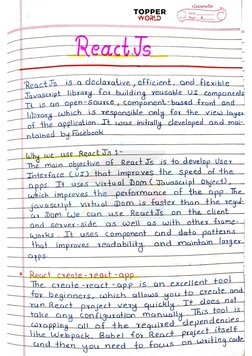 TOPPER
WORLD
classmate
ReactJs
ReactJs is a declarative, efficient, and flexible
Javascript library for building reusable UI components
It is an open-source, component-based front end
library which is responsible only for the view layer
of the application. It was initially developed and mai-
ntained by Facebook
Why we use ReactJs :-
The main objective of ReactJs is to develop User
Interface (UI) that improves the speed of the
apps. It uses virtual Dom (Javascript Object),
which improves the performance of the app. The
javascript virtual Dom is faster than the regul-
ar Dom. We can use ReactJs on the client
and server-side as well as with other frame-
works. It uses Component and data patterns
that improves readability and maintain larger
apps.
React create-react-app
The create-react-app is an excellent tool
for beginners, which allows you to create and
run React project very quickly. It does not
take any Configuration manually. This tool is
wrapping all of the required dependencies
like Webpack, Babel for React project itself
and then you need to focus on writing code